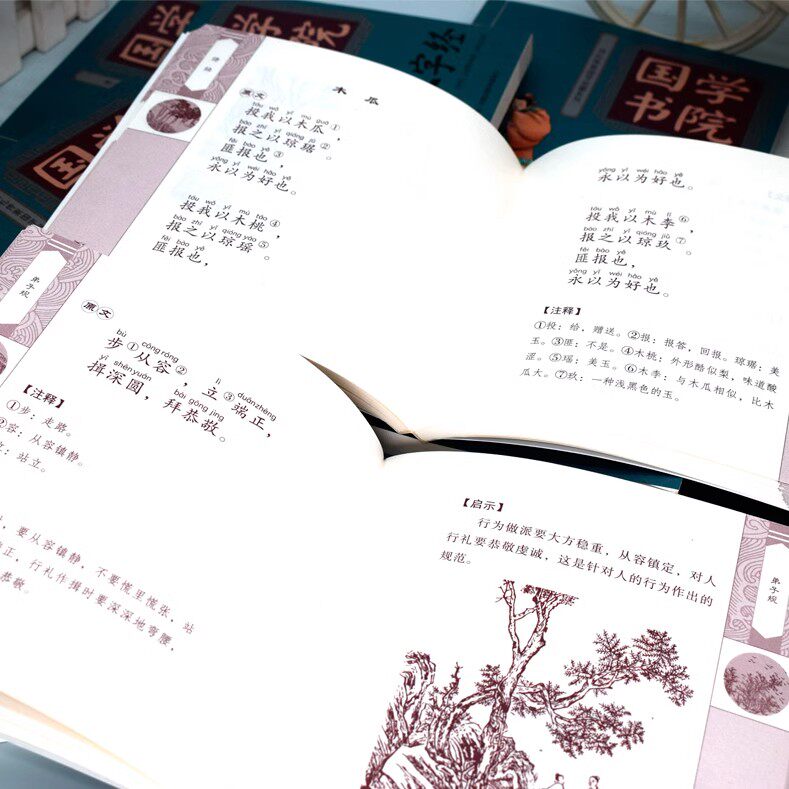 国学
书院
国学
书院
字经
国学
书院
诗经
木瓜
原文
tóu wǒ yǐ mù guā
投我以木瓜①，
bào zhī yǐ qióng jū
报之以琼琚②。
fěi bào yě
匪报也③，
yǒng yǐ wéi hǎo yě
永以为好也。
tóu wǒ yǐ mù táo
投我以木桃④，
bào zhī yǐ qióng yáo
报之以琼瑶⑤。
fěi bào yě
匪报也，
yǒng yǐ wéi hǎo yě
永以为好也。
tóu wǒ yǐ mù lǐ
投我以木李⑥，
bào zhī yǐ qióng jiǔ
报之以琼玖⑦。
fěi bào yě
匪报也，
yǒng yǐ wéi hǎo yě
永以为好也。
【注释】
①投：给，赠送。②报：报答，回报。琼琚：美
玉。③匪：不是。④木桃：外形酷似梨，味道酸
涩。⑤瑶：美玉。⑥木李：与木瓜相似，比木
瓜大。⑦玖：一种浅黑色的玉。
弟子规
原文
bù cōng róng lì duān zhèng
步①从容②，立③端正，
yī shēn yuán bài gōng jìng
揖深圆，拜恭敬。
【注释】
①步：走路。
②容：从容镇静。
立：站立。
，要从容镇静，不要慌里慌张，站
正，行礼作揖时要深深地弯腰，
恭敬。
【启示】
行为做派要大方稳重，从容镇定，对人
行礼要恭敬虔诚，这是针对人的行为作出的
规范。
弟子规